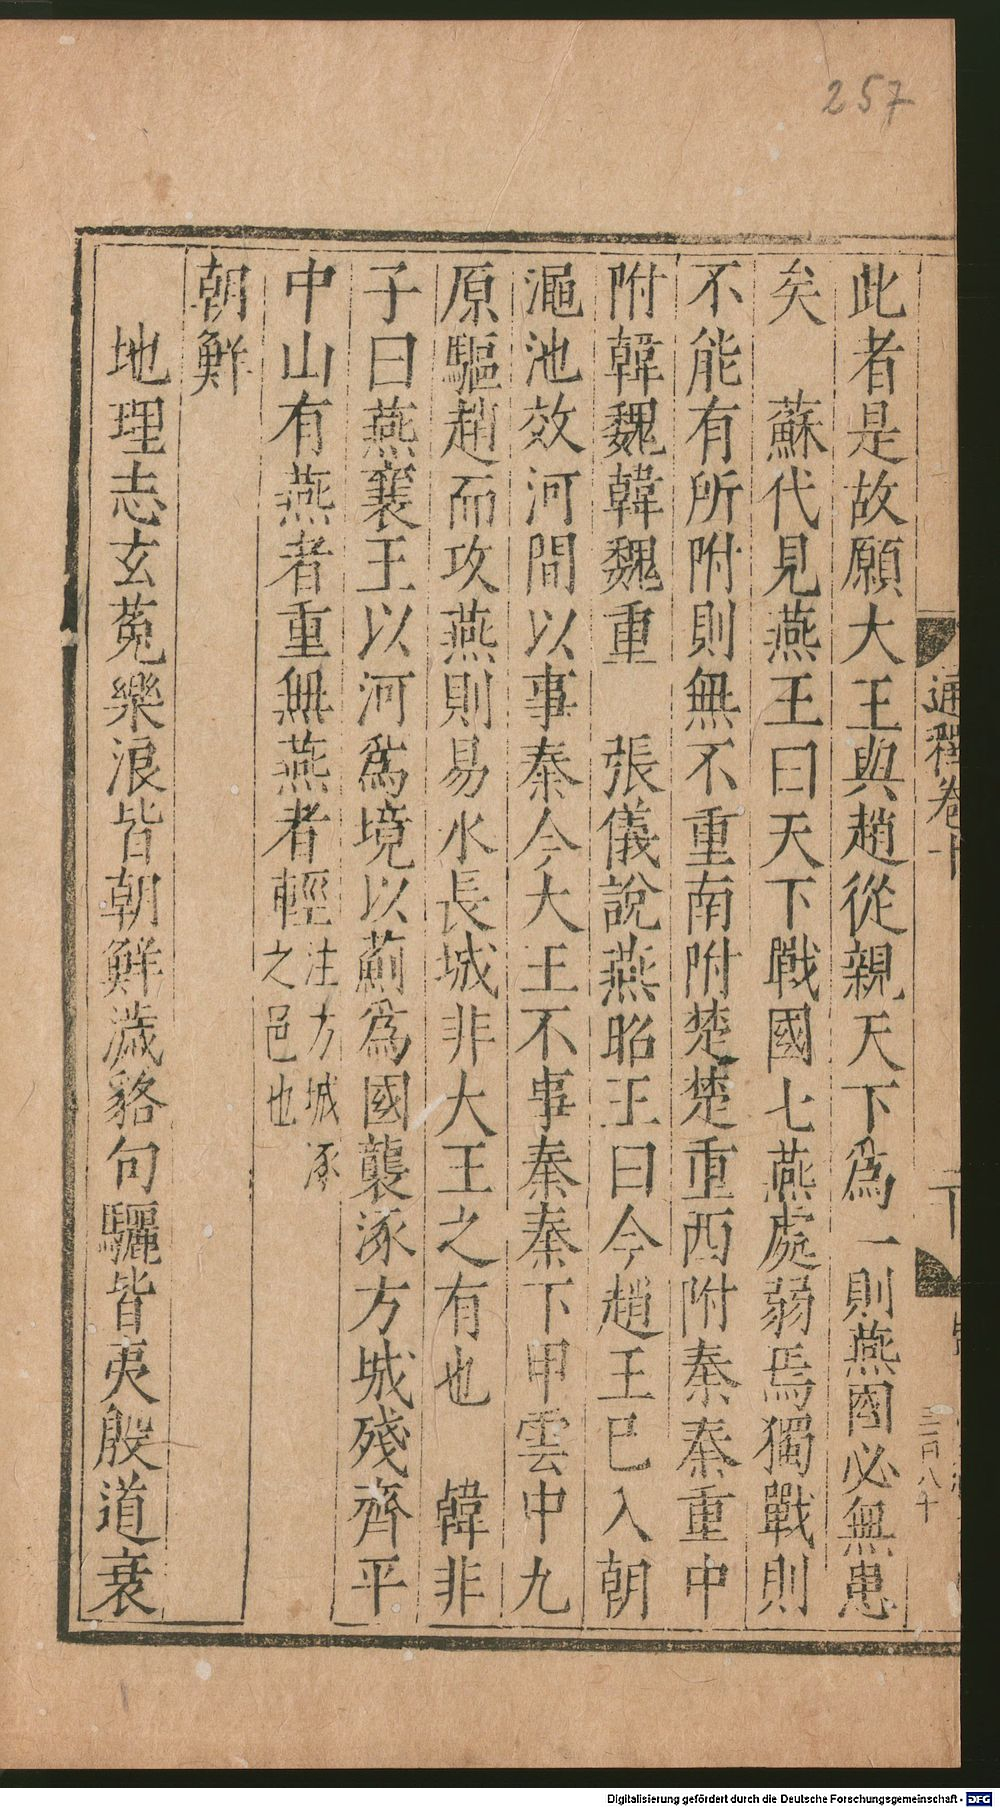 257
此者是故願大王與趙從親天下爲一則燕國必無患
矣　蘇代見燕王曰天下戰國七燕處弱焉獨戰則
不能有所附則無不重南附楚楚重西附秦秦重中
附韓魏韓魏重　張儀說燕昭王曰今趙王已入朝
澠池效河間以事秦今大王不事秦秦下甲雲中九
原驅趙而攻燕則易水長城非大王之有也　韓非
子曰燕襄王以河爲境以薊爲國襲涿方城殘齊平
中山有燕者重無燕者輕注方城涿
之邑也
朝鮮
地理志玄菟樂浪皆朝鮮濊貉句驪皆夷殷道衰
通釋卷十
二十
三百八十
Digitalisierung gefördert durch die Deutsche Forschungsgemeinschaft - DFG